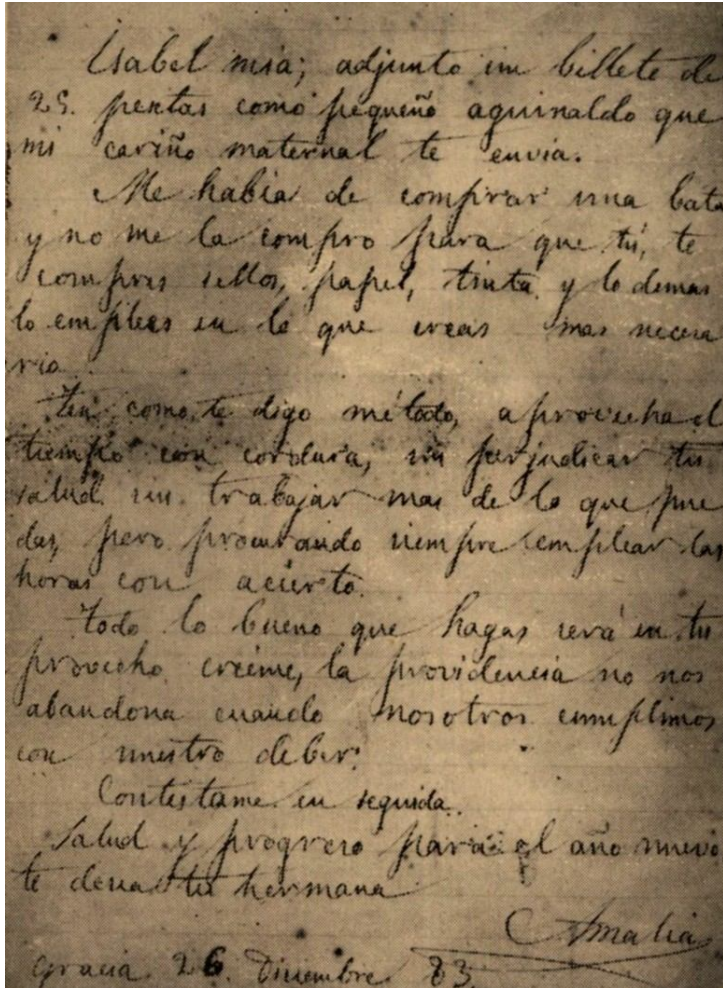 Isabel mia; adjunto un billete de
25. pesetas como pequeño aguinaldo que
mi cariño maternal te envia.
Me habia de comprar una bata
y no me la compro para que tú, te
compres sellos, papel, tinta y lo demas
lo emplees en lo que creas mas necesa
rio.
Ten como te digo método, aprovecha el
tiempo con cordura, sin perjudicar tu
salud sin trabajar mas de lo que pue
das, pero procurando siempre emplear las
horas con acierto.
Todo lo bueno que hagas será en tu
provecho creéme, la providencia no nos
abandona cuando nosotros cumplimos
con nuestro deber.
Contestame en seguida.
Salud y progreso para el año nuevo
te desea tu hermana
Amalia
Gracia 26. Diciembre 83.